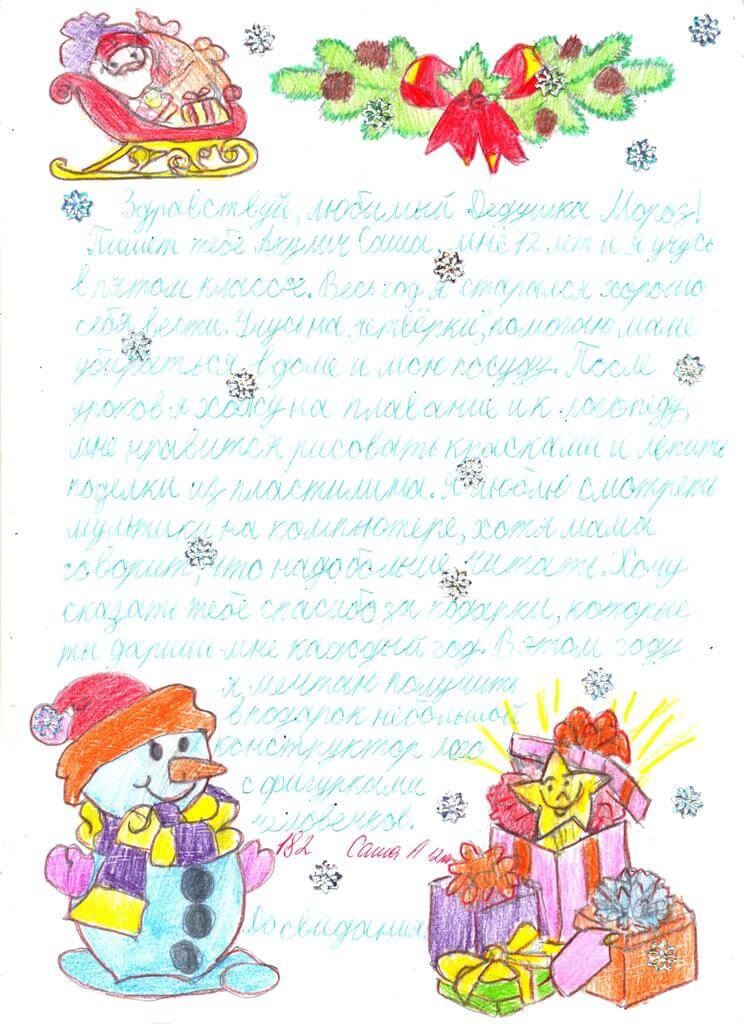 Здравствуй, любимый Дедушка Мороз!
Пишет тебе Акулич Саша, мне 12 лет и я учусь
в пятом классе. Весь год я старался хорошо
себя вести. Учусь на четвёрки, помогаю маме
убираться в доме и мою посуду. После
уроков я хожу на плавание и к логопеду,
мне нравится рисовать красками и лепить
поделки из пластилина. Я люблю смотреть
мультики на компьютере, хотя мама
говорит, что надо больше читать. Хочу
сказать тебе спасибо за подарки, которые
ты даришь мне каждый год. В этом году
я мечтаю получить
в подарок небольшой
конструктор лего
с фигурками
человечков.
182 Саша А 12 лет
До свидания.